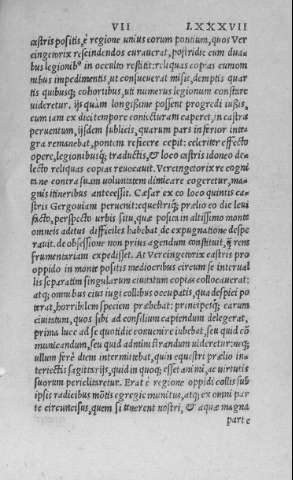 VII LXXXVII
castris positis, è regione unius eorum pontium, quos Ver
cingentorix rescindendos curauerat, postridie cum dua
bus legionib᾽ in occulto restitit: reliquas copias cum om
nibus impedimentis, ut consueuerat misit, demptis quar
tis quibusq; cohortibus, uti numerus legionum constare
uideretur. ijs quàm longissime possent progredi iussis,
cum iam ex diei tempore coniecturam caperet, in castra
peruentum, ijsdem sublicis, quarum pars inferior inte
gra remanebat, pontem reficere cœpit: celeriter effecto
opere, legionibusq; traductis, & loco castris idoneo de
lecto reliquas copias reuocauit. Vercingetorix re cogni
ta ne contra suam uoluntatem dimicare cogeretur, ma
gnis itineribus antecessit. Cæsar ex eo loco quintis ca
stris Gergouiam peruenit: equestriq; prælio eo die leui
facto, perspecto urbis situ, quæ posita in altissimo monte
omneis aditus difficiles habebat de expugnatione despe
rauit. de obsessione non prius agendum constituit, q̃ rem
frumentariam expedisset. At Vercingentorix castris pro
oppido in monte positis mediocribus circum se interual
lis separatim singularum ciuitatum copias collocauerat:
atq; omnibus eius iugi collibus occupatis, qua despici po
terat, horribilem speciem præbebat: principesq; earum
ciuitatum, quos sibi ad consilium capiendum delegerat,
prima luce ad se quotidie conuenire iubebat, seu quid cõ
municandum, seu quid administrandum uideretur: neq;
ullum ferè diem intermittebat, quin equestri prælio in
teriectis sagittarijs, quid in quoq; esset animi, ac uirtutis
suorum periclitaretur. Erat è regione oppidi collis sub
ipsis radicibus mõtis egregie munitus, atq; ex omni par
te circuncisus, quem si tenerent nostri, & aquæ magna
parte